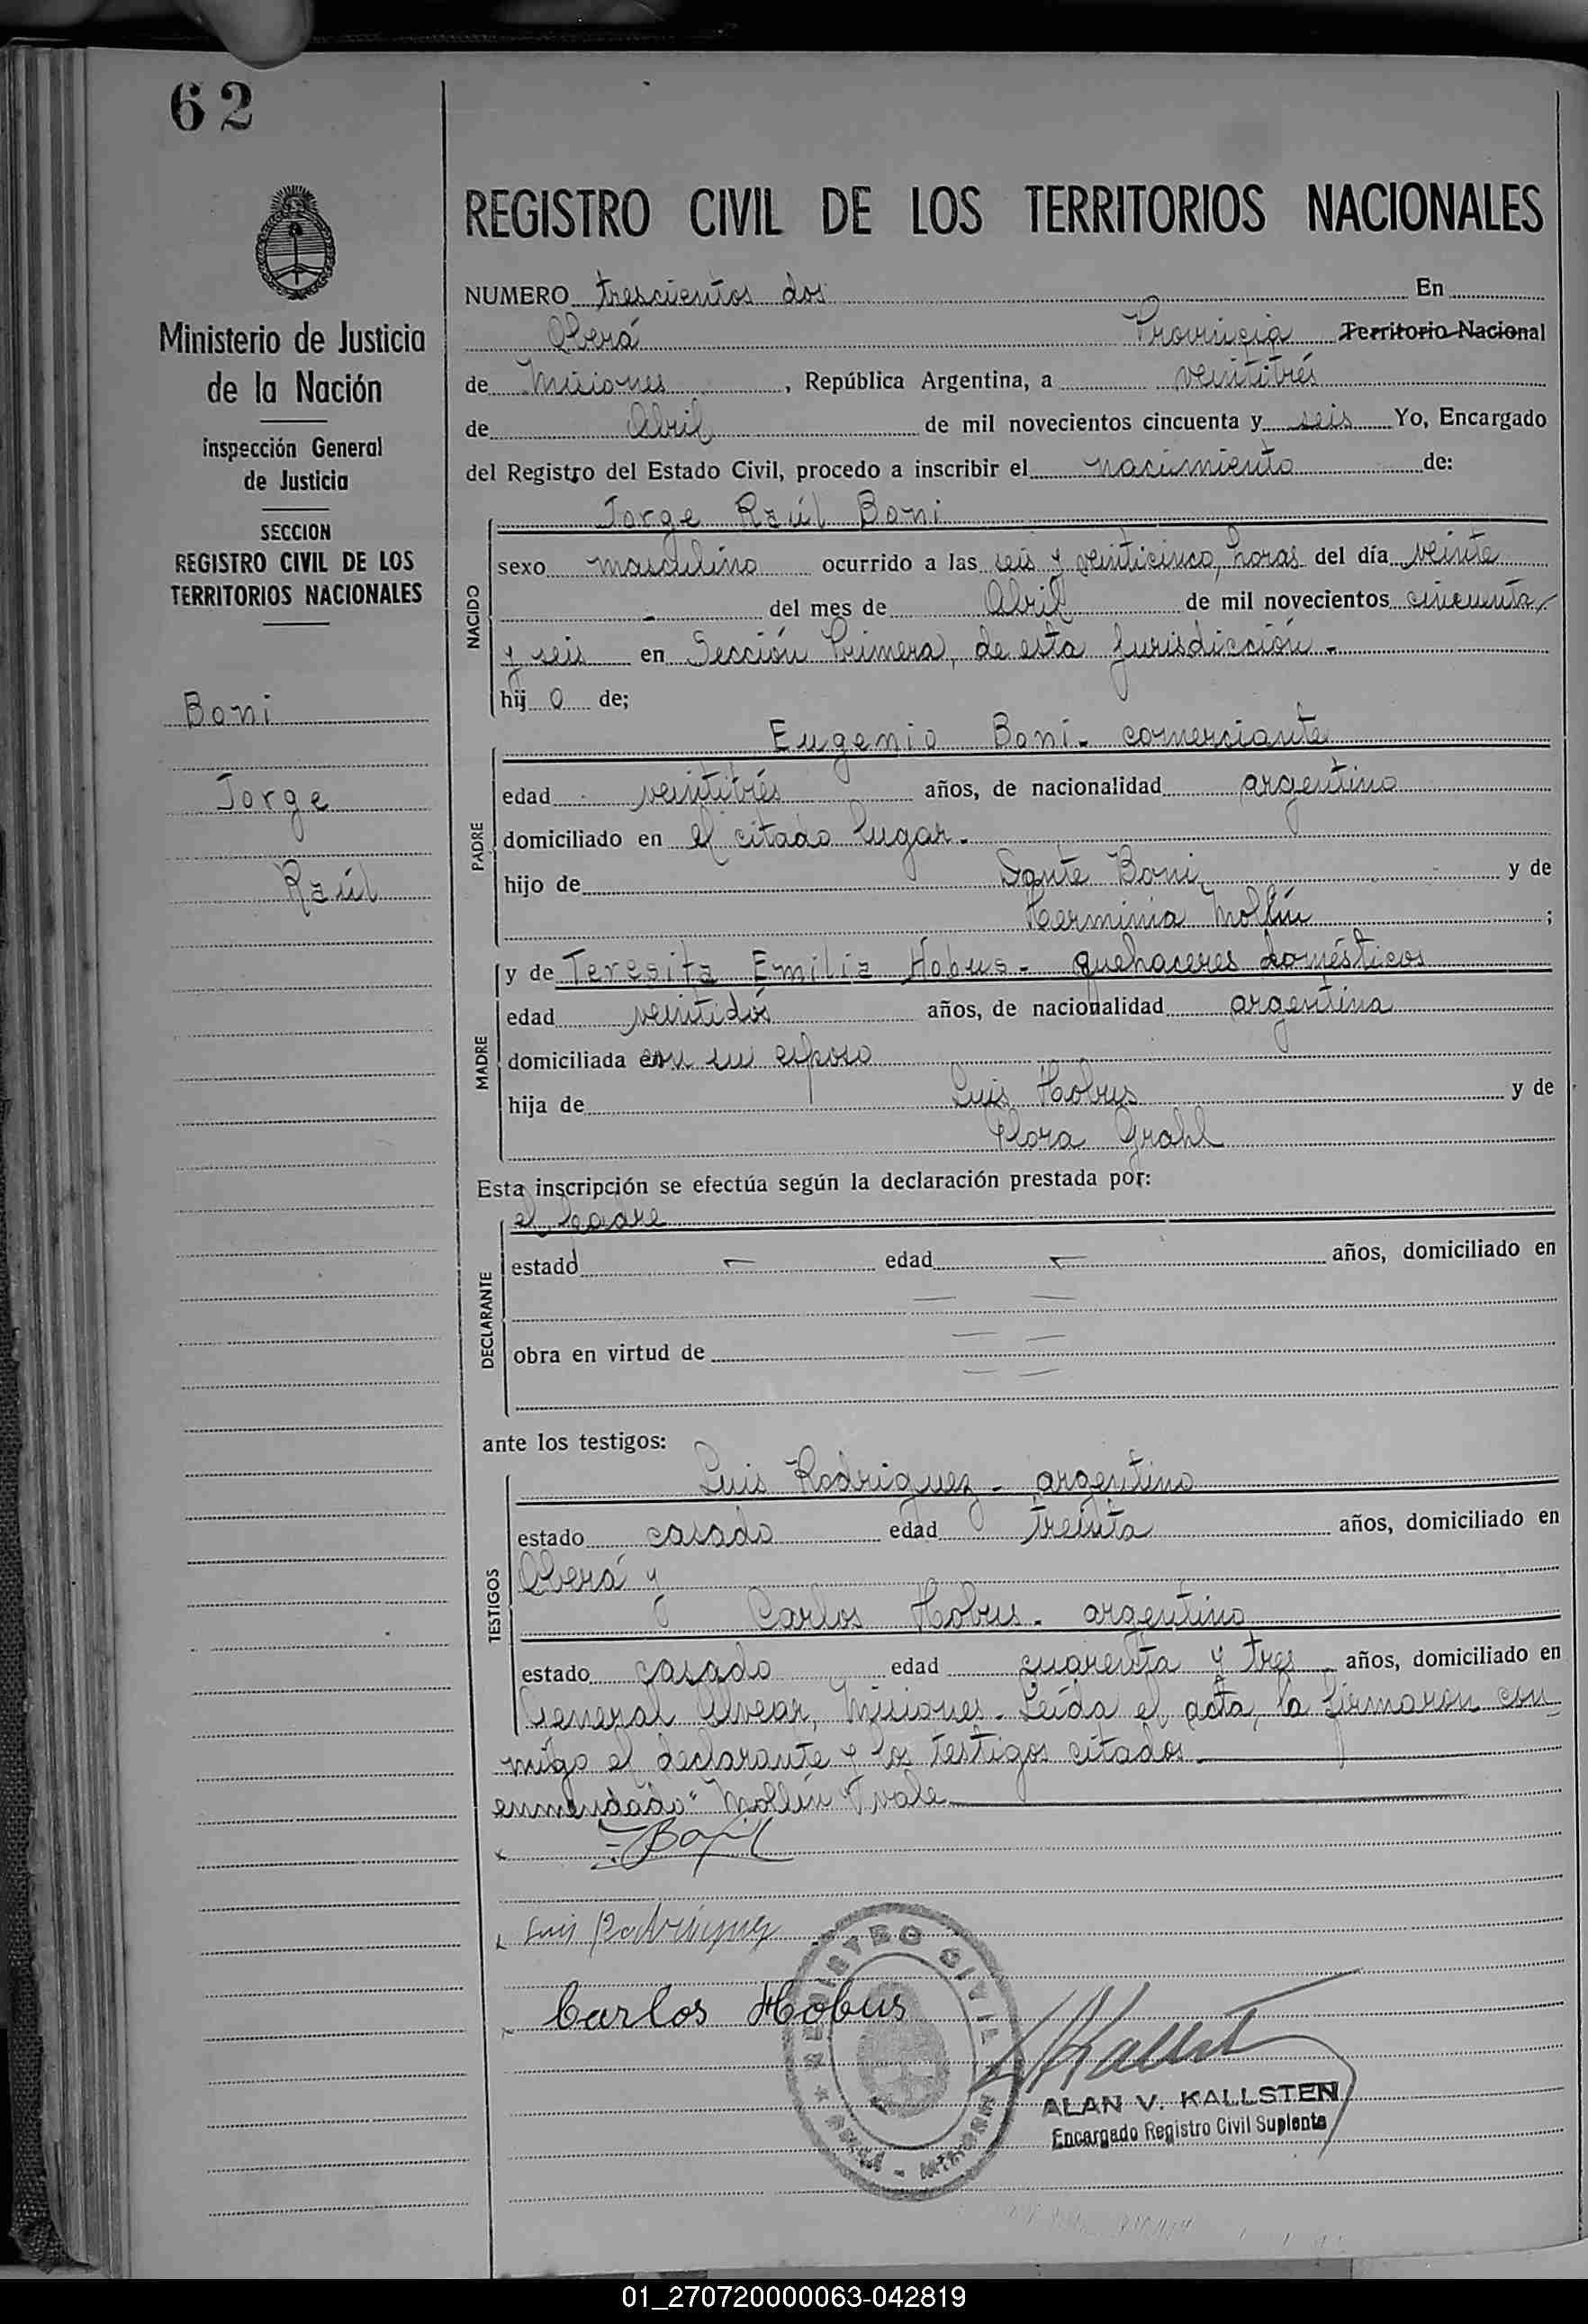 62
REGISTRO CIVIL DE LOS TERRITORIOS NACIONALES
Ministerio de Justicia
de la Nación
inspección General
de Justicia
SECCION
REGISTRO CIVIL DE LOS
TERRITORIOS NACIONALES
Boni
Jorge
Raúl
NUMERO trescientos dos En
Oberá Provincia Territorio Nacional
de Misiones, República Argentina, a veintitrés
de Abril de mil novecientos cincuenta y seis Yo, Encargado
del Registro del Estado Civil, procedo a inscribir el nacimiento de:
NACIDO
Jorge Raúl Boni
sexo masculino ocurrido a las seis y veinticinco, horas del día veinte
- del mes de Abril de mil novecientos cincuenta
y seis en Sección Primera, de esta jurisdicción.-
hij o de;
PADRE
Eugenio Boni.- comerciante
edad veintitrés años, de nacionalidad argentino
domiciliado en el citado lugar.-
hijo de Dante Boni y de
Herminia Mollín ;
MADRE
y de Teresita Emilia Hobus.- quehaceres domésticos
edad veintidós años, de nacionalidad argentina
domiciliada con su esposo
hija de Luis Hobus y de
Flora Grahl
Esta inscripción se efectúa según la declaración prestada por:
DECLARANTE
el padre
estado - edad - años, domiciliado en
obra en virtud de
ante los testigos:
TESTIGOS
Luis Rodriguez.- argentino
estado casado edad treinta años, domiciliado en
Oberá y
Carlos Hobus.- argentino
estado casado edad cuarenta y tres años, domiciliado en
General Alvear, Misiones.- Leída el acta, la firmaron con-
migo el declarante y los testigos citados.
enmendado "Mollín" vale
Luis Rodriguez
Carlos Hobus
REGISTRO CIVIL
ALAN V. KALLSTEN
Encargado Registro Civil Suplente
01_270720000063-042819